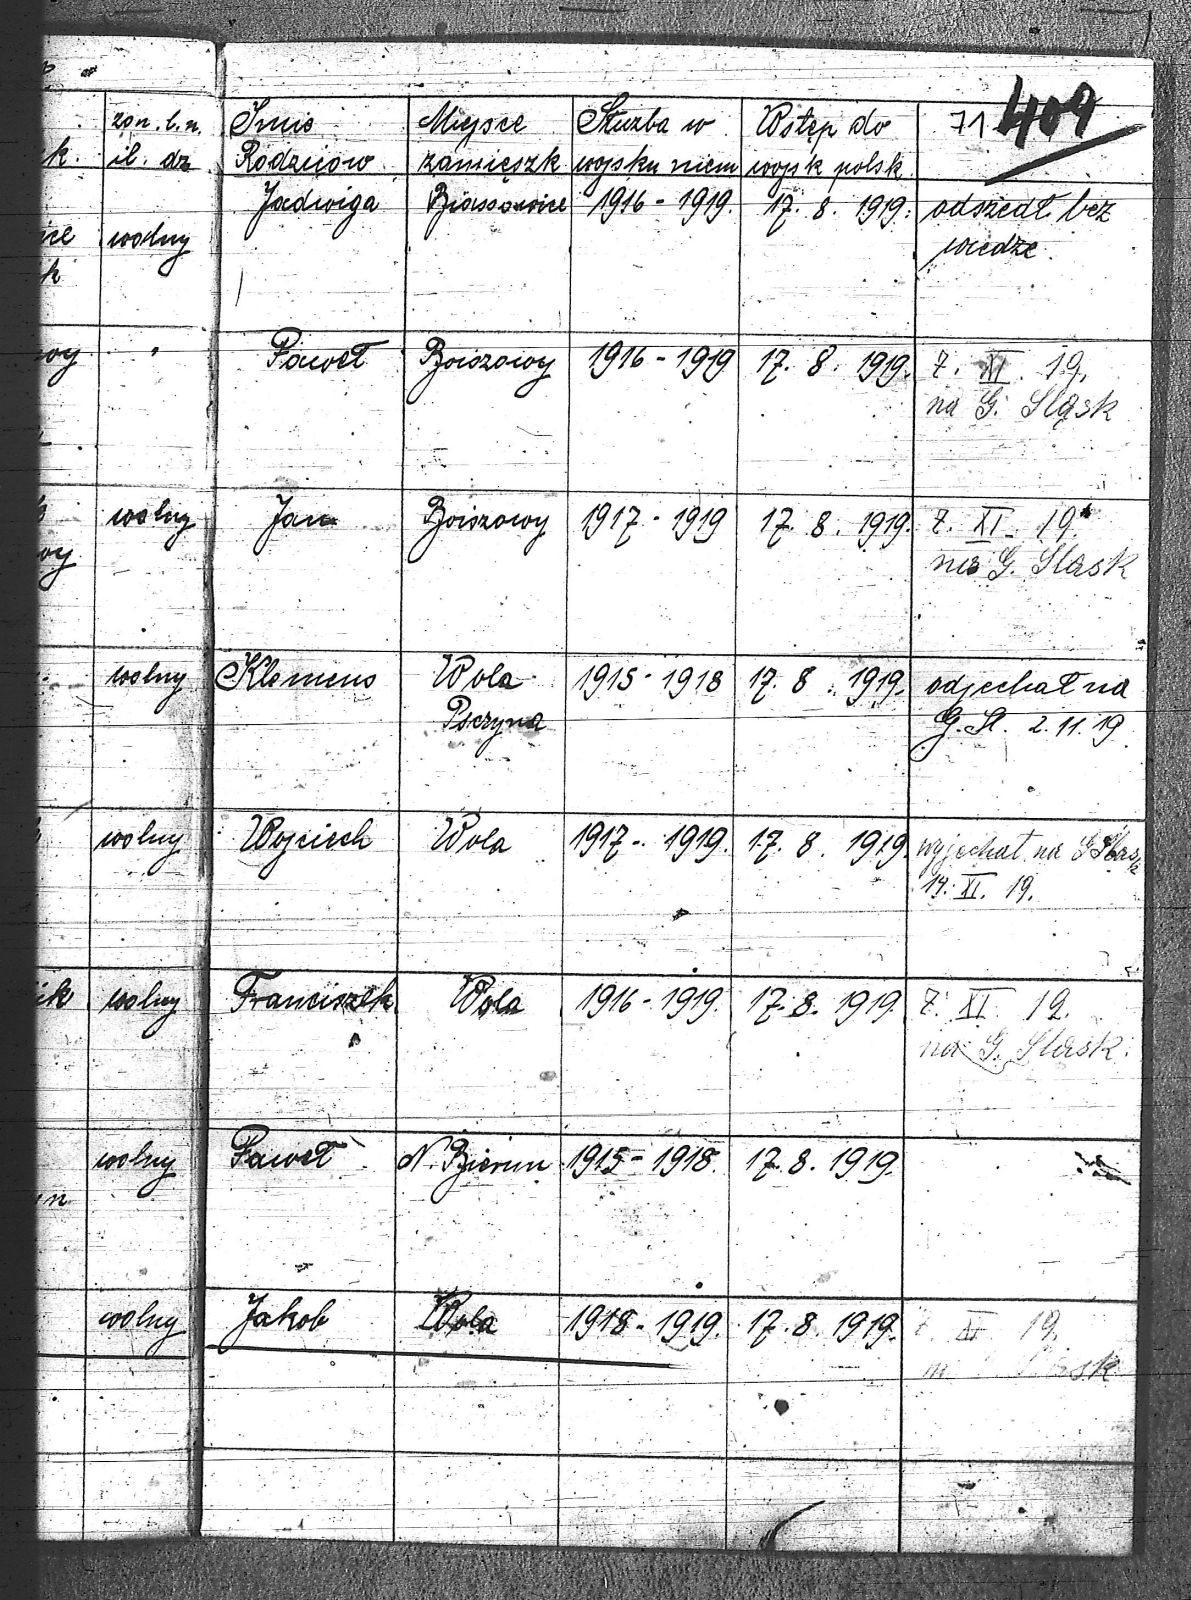 71 409
żon. l. n. Imię Miejsce Służba w Wstęp do
k. il. dz Rodziców zamieszk wojsku niem wojsk polsk
Jadwiga 1916 - 1919. 17. 8. 1919. odszedł bez
wolny wiedze.
Paweł Bojszowy 1916 - 1919 17. 8. 1919. 7. XI. 19.
na G. Śląsk
wolny Jan Bojszowy 1917 - 1919 17. 8. 1919. 7. XI. 19.
na G. Slask
wolny Klemens Wola 1915 - 1918 17. 8. 1919. odjechał na
Psczyna G. Sl. 2. 11. 19
wolny Wojciech Wola 1917 - 1919. 17. 8. 1919. wyjechał na G Slask
14. XI. 19.
wolny Franciszek Wola 1916 - 1919. 17. 8. 1919. 7. XI. 19.
na G. Slask.
wolny Paweł N. Bierun 1915 - 1918. 17. 8. 1919.
wolny Jakob Wola 1918 - 1919. 17. 8. 1919. XI 19.